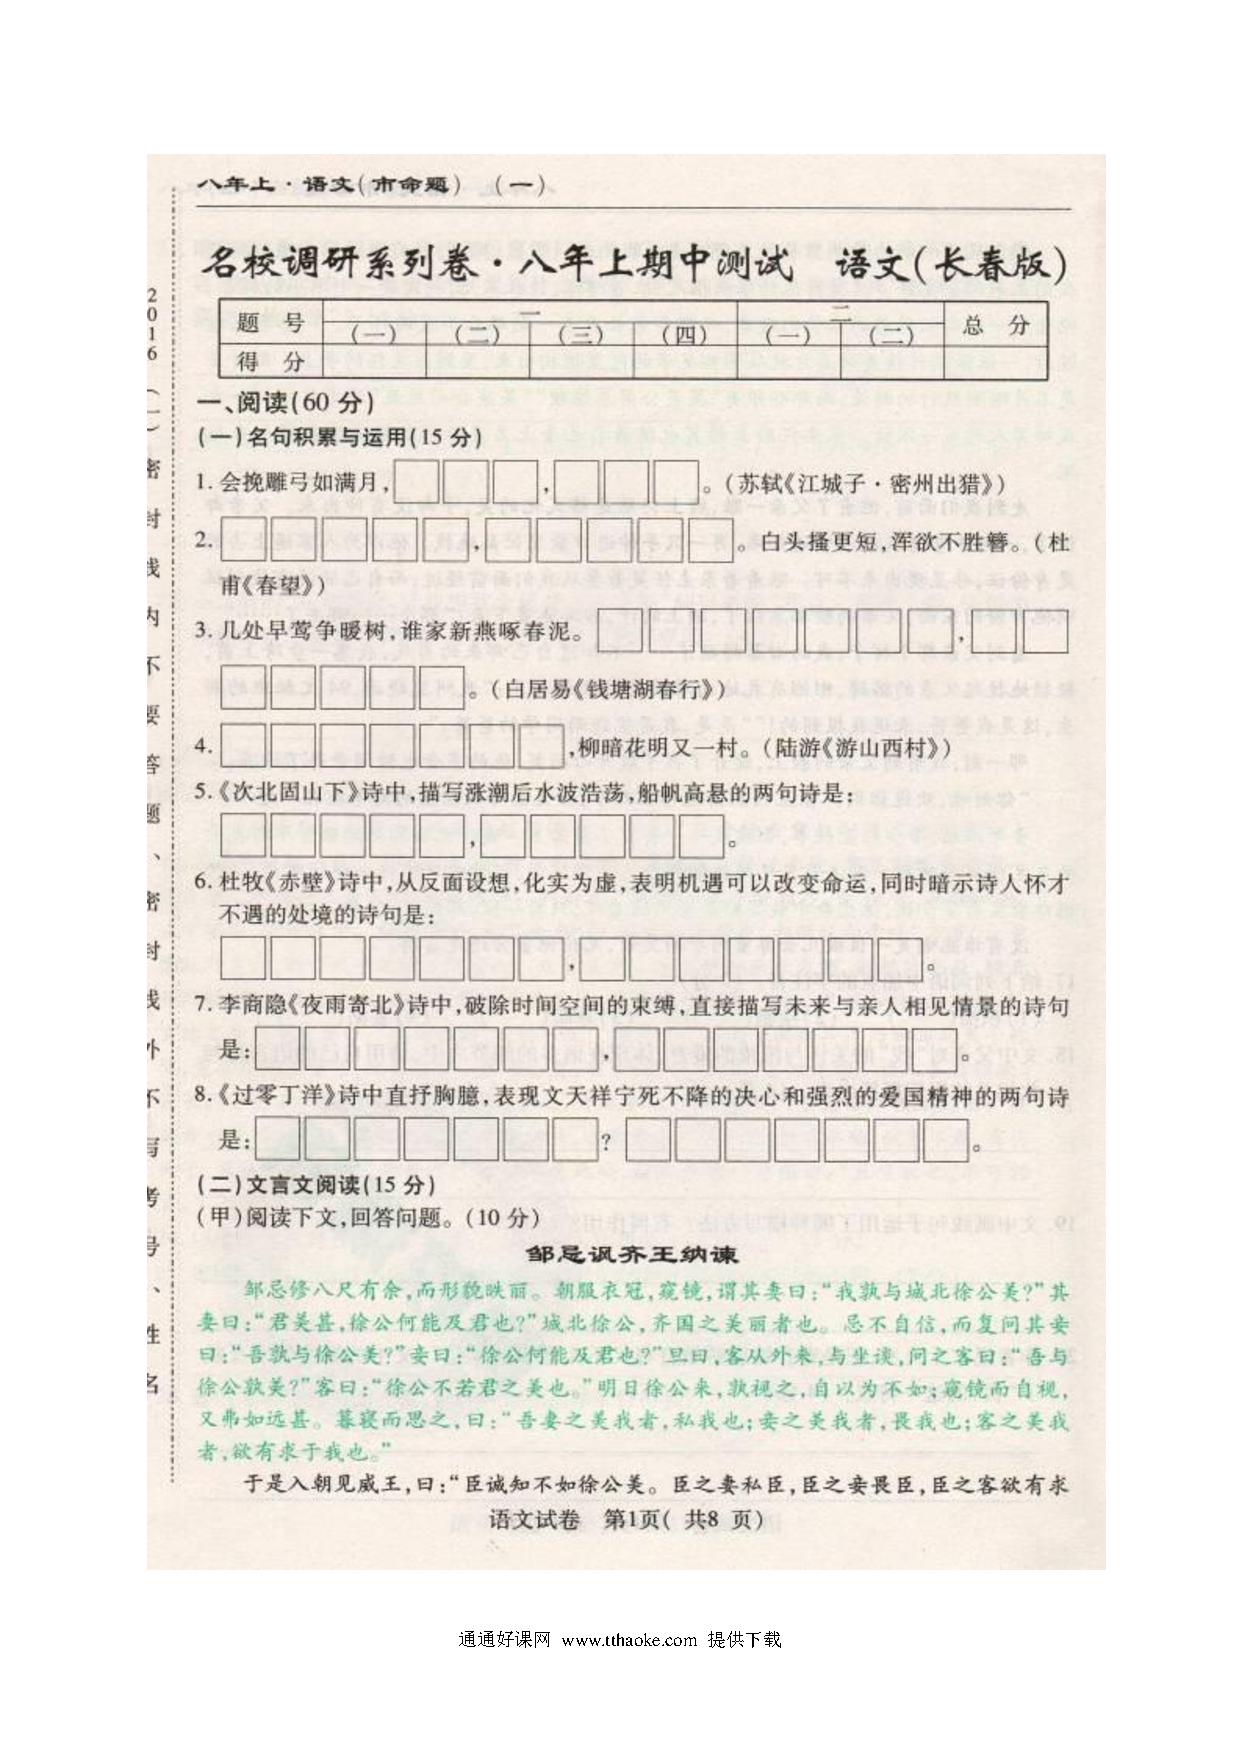 八年上·语文(市命题) (一)
名校调研系列卷·八年上期中测试 语文(长春版)
题 号 一 二 总 分
(一) (二) (三) (四) (一) (二)
得 分
一、阅读(60 分)
(一)名句积累与运用(15 分)
1. 会挽雕弓如满月,□□□,□□□。(苏轼《江城子·密州出猎》)
2. □□□□□,□□□□□。白头搔更短,浑欲不胜簪。(杜
甫《春望》)
3. 几处早莺争暖树,谁家新燕啄春泥。□□□□□□□,□□
□□□□□。(白居易《钱塘湖春行》)
4. □□□□□□□,柳暗花明又一村。(陆游《游山西村》)
5.《次北固山下》诗中,描写涨潮后水波浩荡,船帆高悬的两句诗是:
□□□□□,□□□□□。
6. 杜牧《赤壁》诗中,从反面设想,化实为虚,表明机遇可以改变命运,同时暗示诗人怀才
不遇的处境的诗句是:
□□□□□□□,□□□□□□□。
7. 李商隐《夜雨寄北》诗中,破除时间空间的束缚,直接描写未来与亲人相见情景的诗句
是:□□□□□□□,□□□□□□□。
8.《过零丁洋》诗中直抒胸臆,表现文天祥宁死不降的决心和强烈的爱国精神的两句诗
是:□□□□□□□?□□□□□□□。
(二)文言文阅读(15 分)
(甲)阅读下文,回答问题。(10 分)
邹忌讽齐王纳谏
邹忌修八尺有余,而形貌昳丽。朝服衣冠,窥镜,谓其妻曰:“我孰与城北徐公美?”其
妻曰:“君美甚,徐公何能及君也?”城北徐公,齐国之美丽者也。忌不自信,而复问其妾
曰:“吾孰与徐公美?”妾曰:“徐公何能及君也?”旦曰,客从外来,与坐谈,问之客曰:“吾与
徐公孰美?”客曰:“徐公不若君之美也。”明日徐公来,孰视之,自以为不如;窥镜而自视,
又弗如远甚。暮寝而思之,曰:“吾妻之美我者,私我也;妾之美我者,畏我也;客之美我
者,欲有求于我也。”
于是入朝见威王,曰:“臣诚知不如徐公美。臣之妻私臣,臣之妾畏臣,臣之客欲有求
语文试卷 第1页( 共8 页)
2016(一)密封线内不要答题、密封线外不写考号、姓名
通通好课网 www.tthaoke.com 提供下载